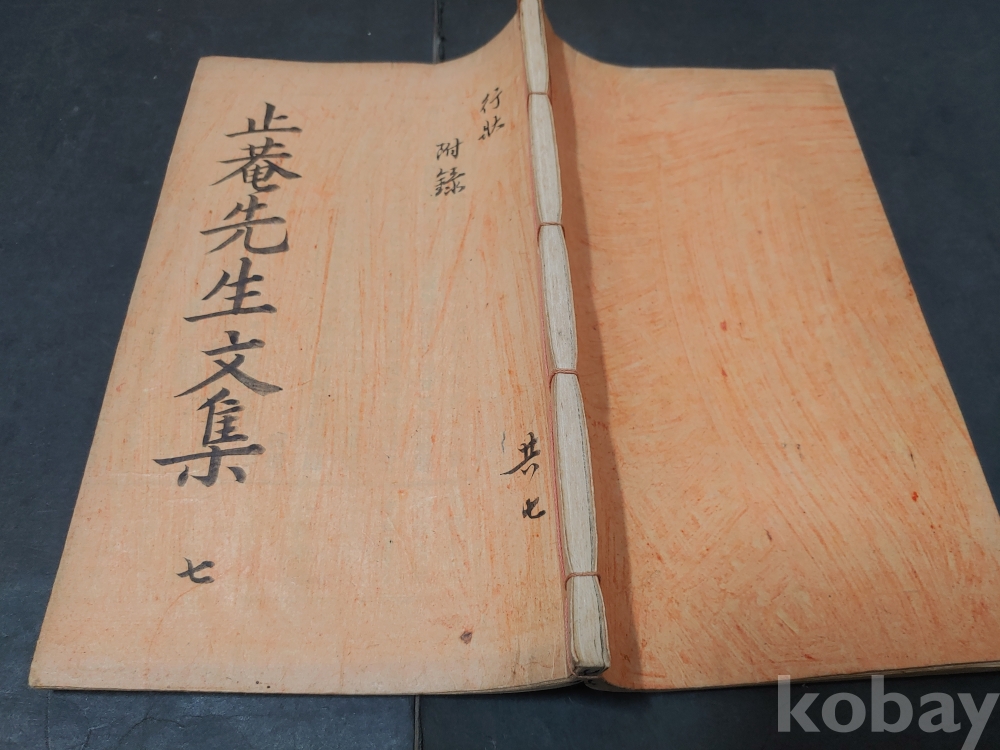 止菴先生文集 七
行狀
附錄
共七
kobay